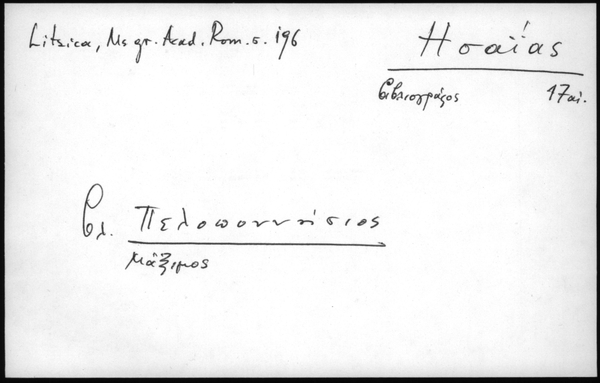 Litzica, Ms gr. Acad. Rom. σ. 196
Ησαΐας
βιβλιογράφος 17 αι.
βλ. Πελοποννήσιος
Μάξιμος